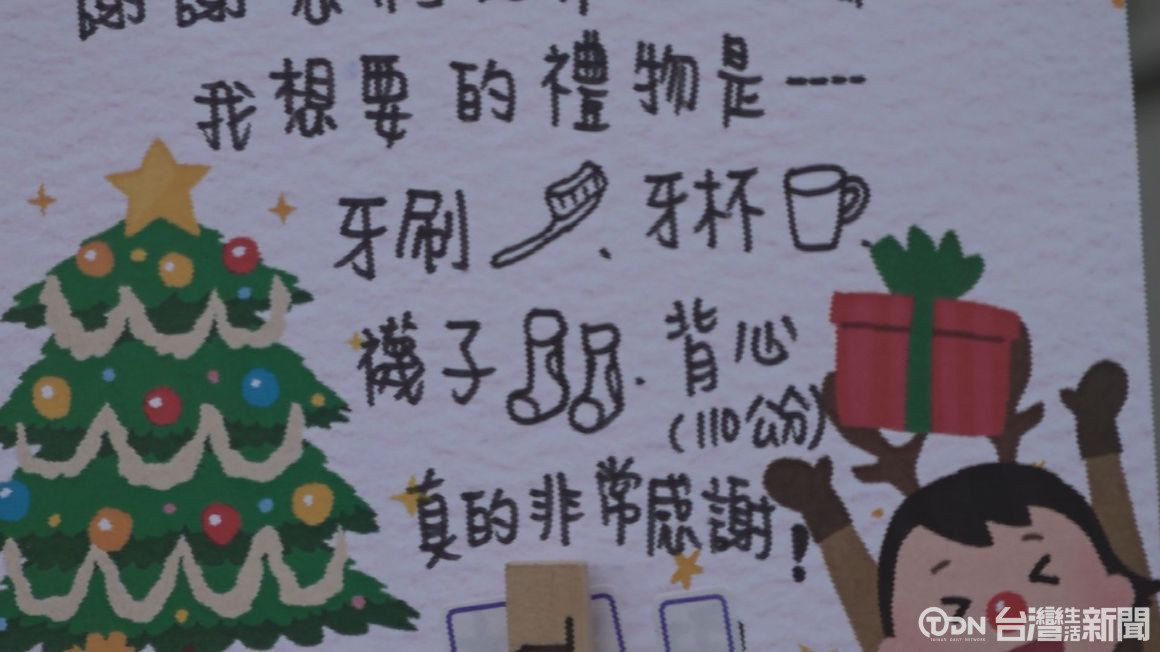 我想要的禮物是----
牙刷、牙杯、
襪子、背心
(110公分)
真的非常感謝!
TDN 台灣生活新聞
TAIWAN DAILY NETWORK